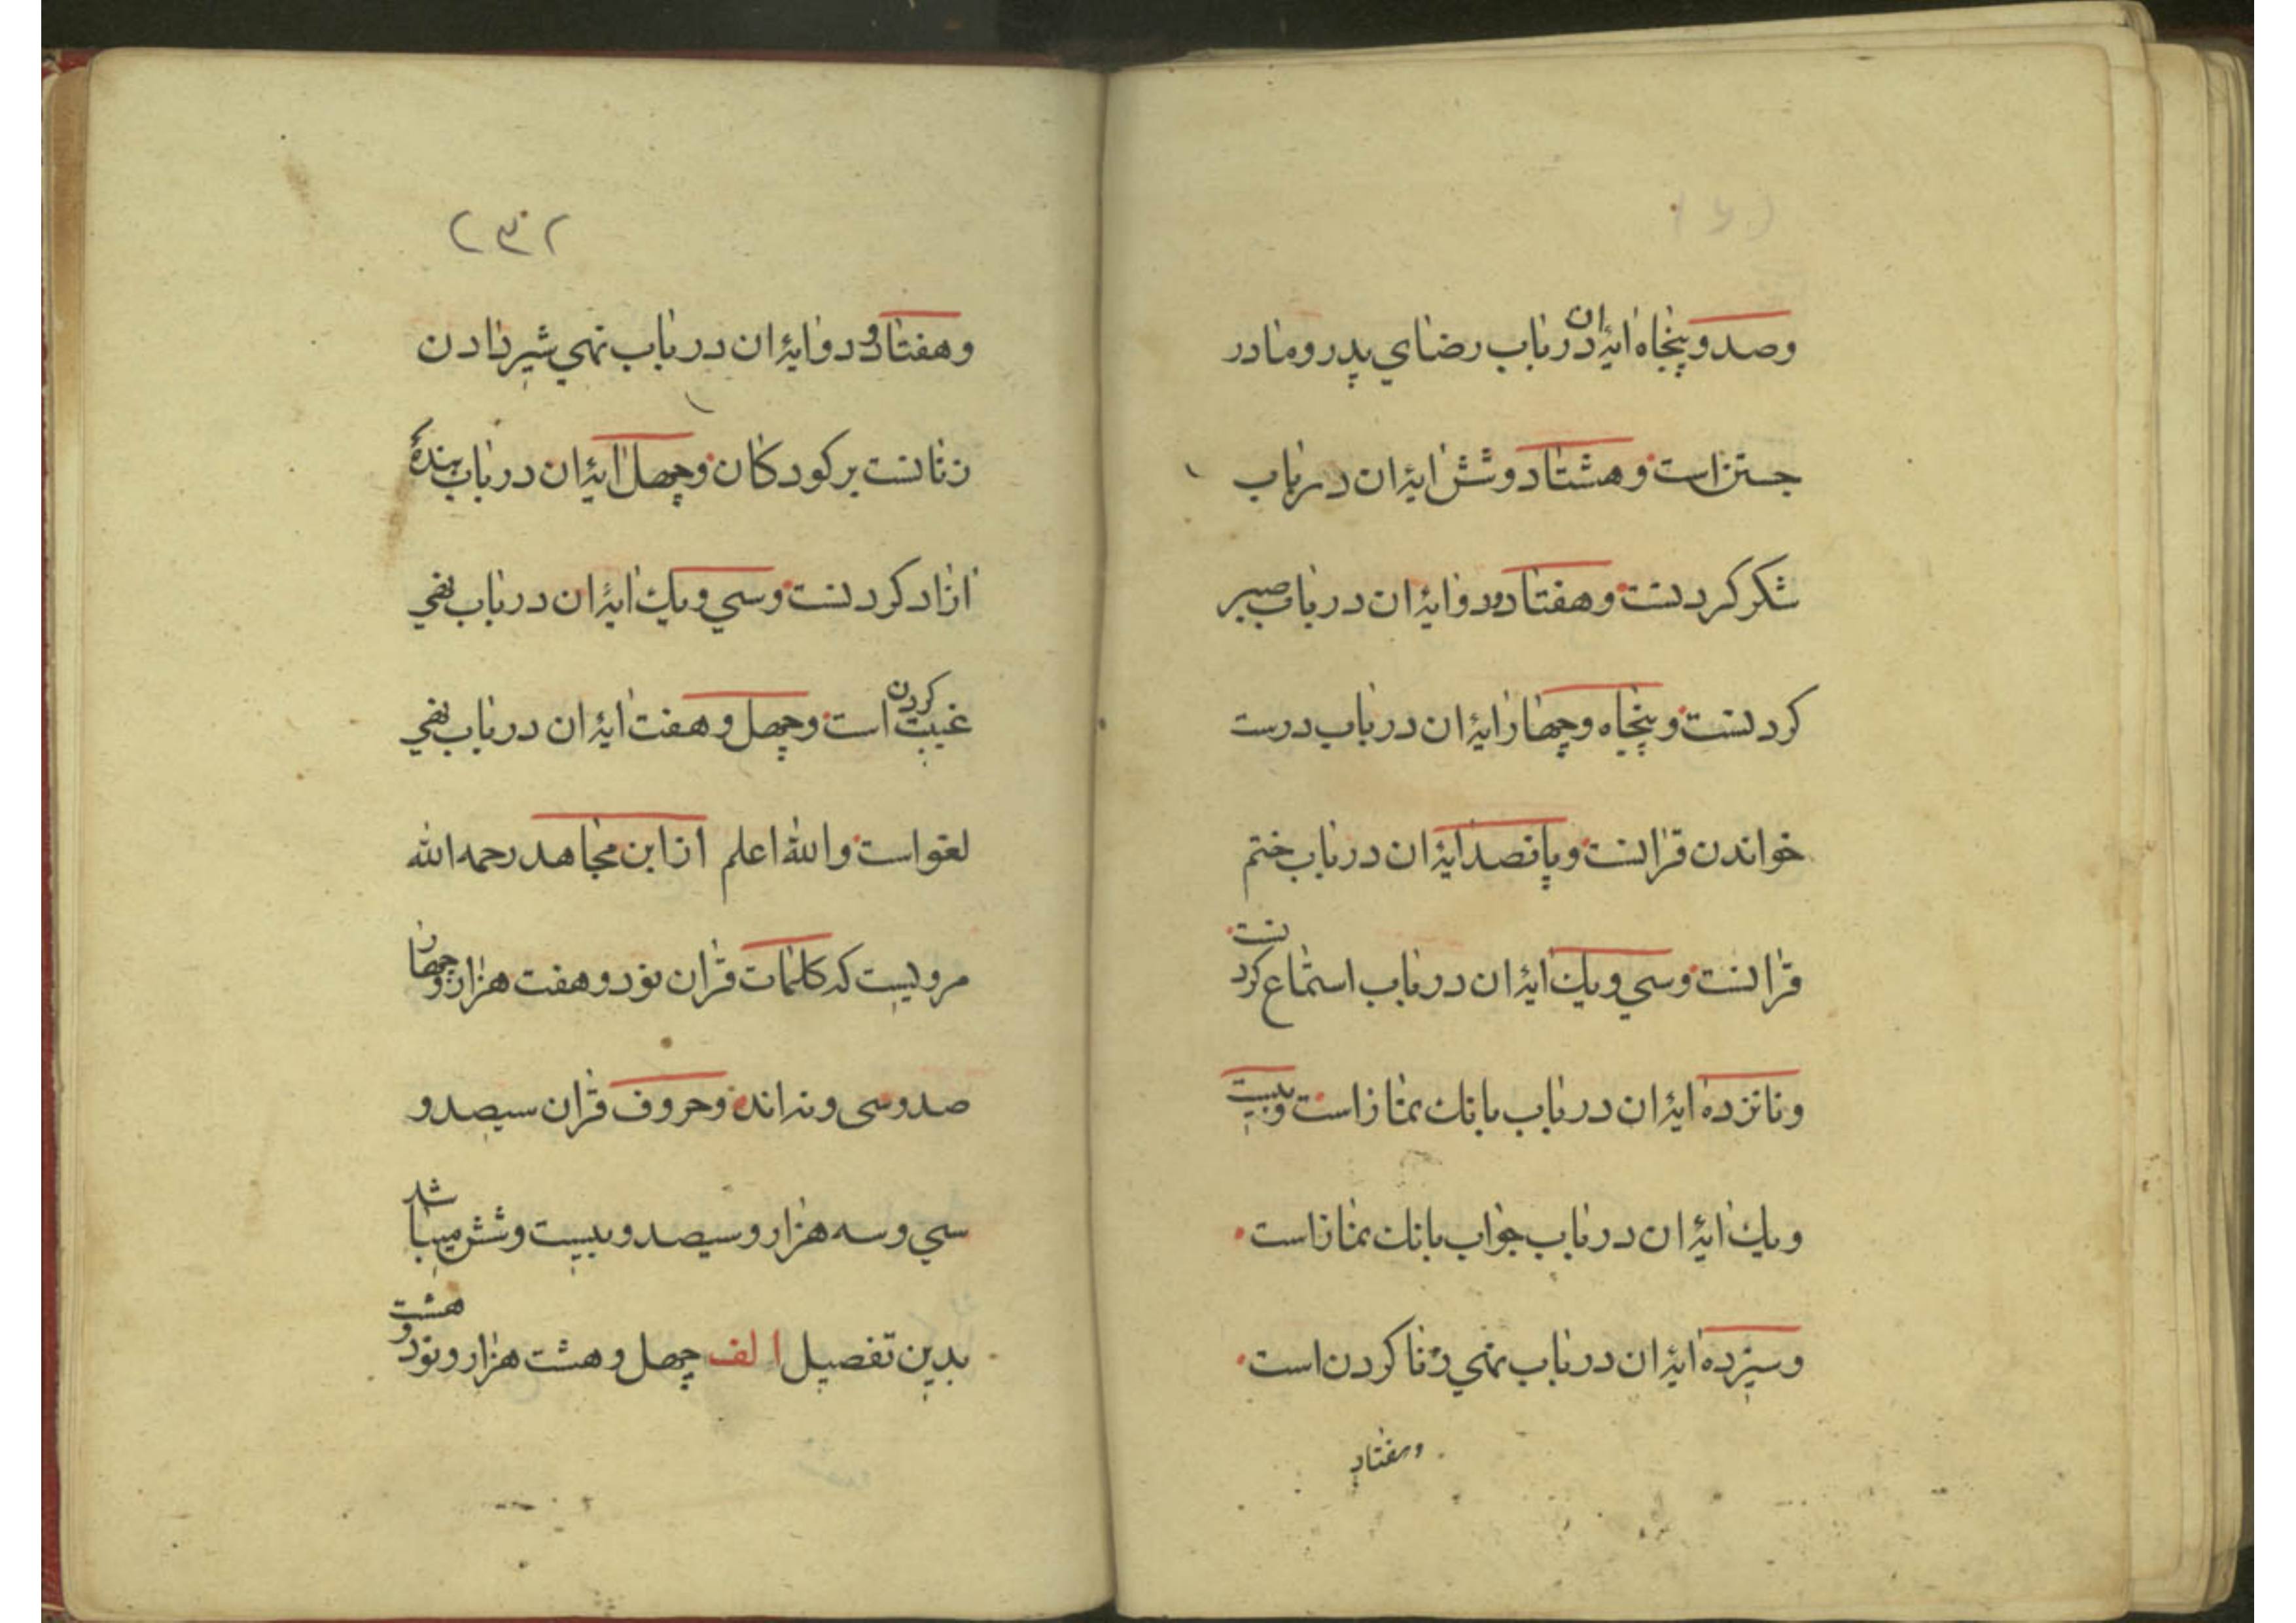 وصد و پنجاه ایهٔ ان در باب رضای پدر و مادر
جستن است و هشتاد و شش ایهٔ ان در باب
شکر کردنست و هفتاد و دو ایهٔ ان در باب صبر
کردنست و پنجاه و چهار ایهٔ ان در باب درست
خواندن قرانست و پانصد ایهٔ ان در باب ختم
قرانست و سی و یك ایهٔ ان در باب استماع کردنست
و نانزده ایهٔ ان در باب بانك نماز است و بیست
و یك ایهٔ ان در باب جواب بانك نماز است
و سیزده ایهٔ ان در باب نهی زنا کردن است
و هفتاد
۲۳۲
و هفتاد و دو ایهٔ ان در باب نهی شیر دادن
زنانست بر کودکان و چهل ایهٔ ان در باب بندهٔ
ازاد کردنست و سی و یك ایهٔ ان در باب نفی
غیبت کردن است و چهل و هفت ایهٔ ان در باب نفی
لغو است و الله اعلم از ابن مجاهد رحمه الله
مرویست که کلمات قران نود و هفت هزار و چهار
صد و سی و نه اند و حروف قران سیصد و
سی و سه هزار و سیصد و بیست و شش میباشد
بدین تفصیل الف چهل و هشت هزار و نود و هشت